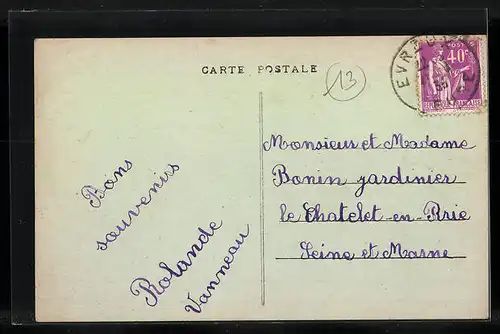 CARTE POSTALE
13
40c
POSTES
REPUBLIQUE FRANÇAISE
Monsieur et Madame
Bonin jardinier
le Chatelet-en-Brie
Seine et Marne
Bons
souvenirs
Rolande
Vanneau